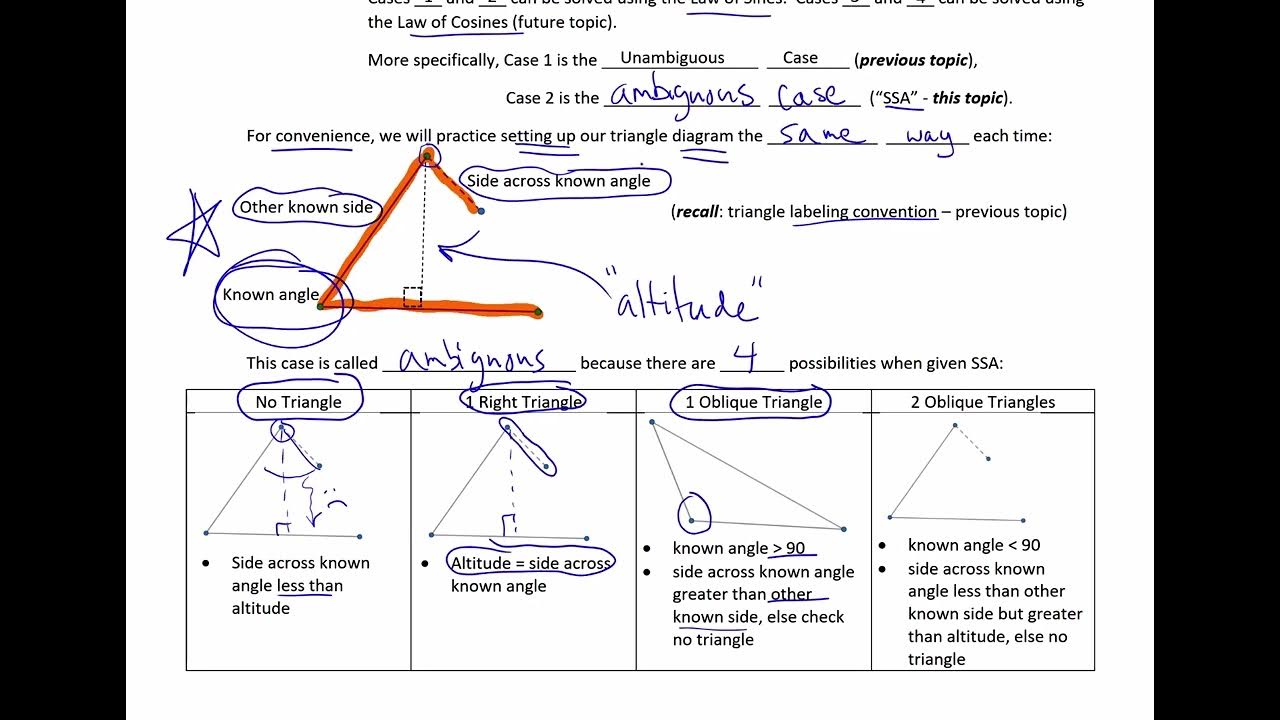 Cases 1 and 2 can be solved using the Law of Sines. Cases 3 and 4 can be solved using
the Law of Cosines (future topic).
More specifically, Case 1 is the Unambiguous Case (previous topic),
Case 2 is the ambiguous case ("SSA" - this topic).
For convenience, we will practice setting up our triangle diagram the same way each time:
Side across known angle
Other known side
(recall: triangle labeling convention – previous topic)
Known angle
"altitude"
This case is called ambiguous because there are 4 possibilities when given SSA:
No Triangle
1 Right Triangle
1 Oblique Triangle
2 Oblique Triangles
• Side across known
angle less than
altitude
• Altitude = side across
known angle
• known angle > 90
• side across known angle
greater than other
known side, else check
no triangle
• known angle < 90
• side across known
angle less than other
known side but greater
than altitude, else no
triangle